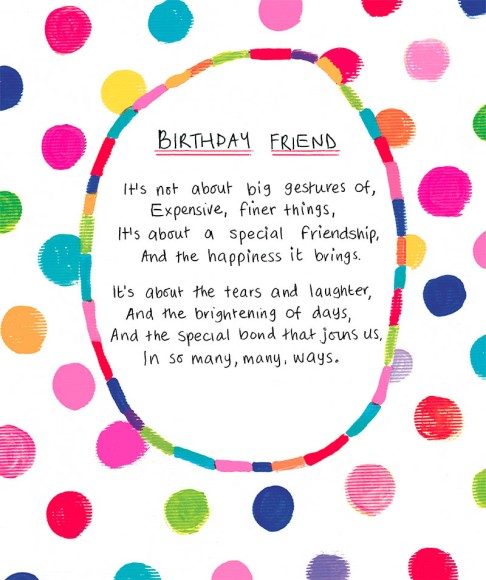 BIRTHDAY FRIEND
It's not about big gestures of,
Expensive, finer things,
It's about a special friendship,
And the happiness it brings.
It's about the tears and laughter,
And the brightening of days,
And the special bond that joins us,
In so many, many, ways.